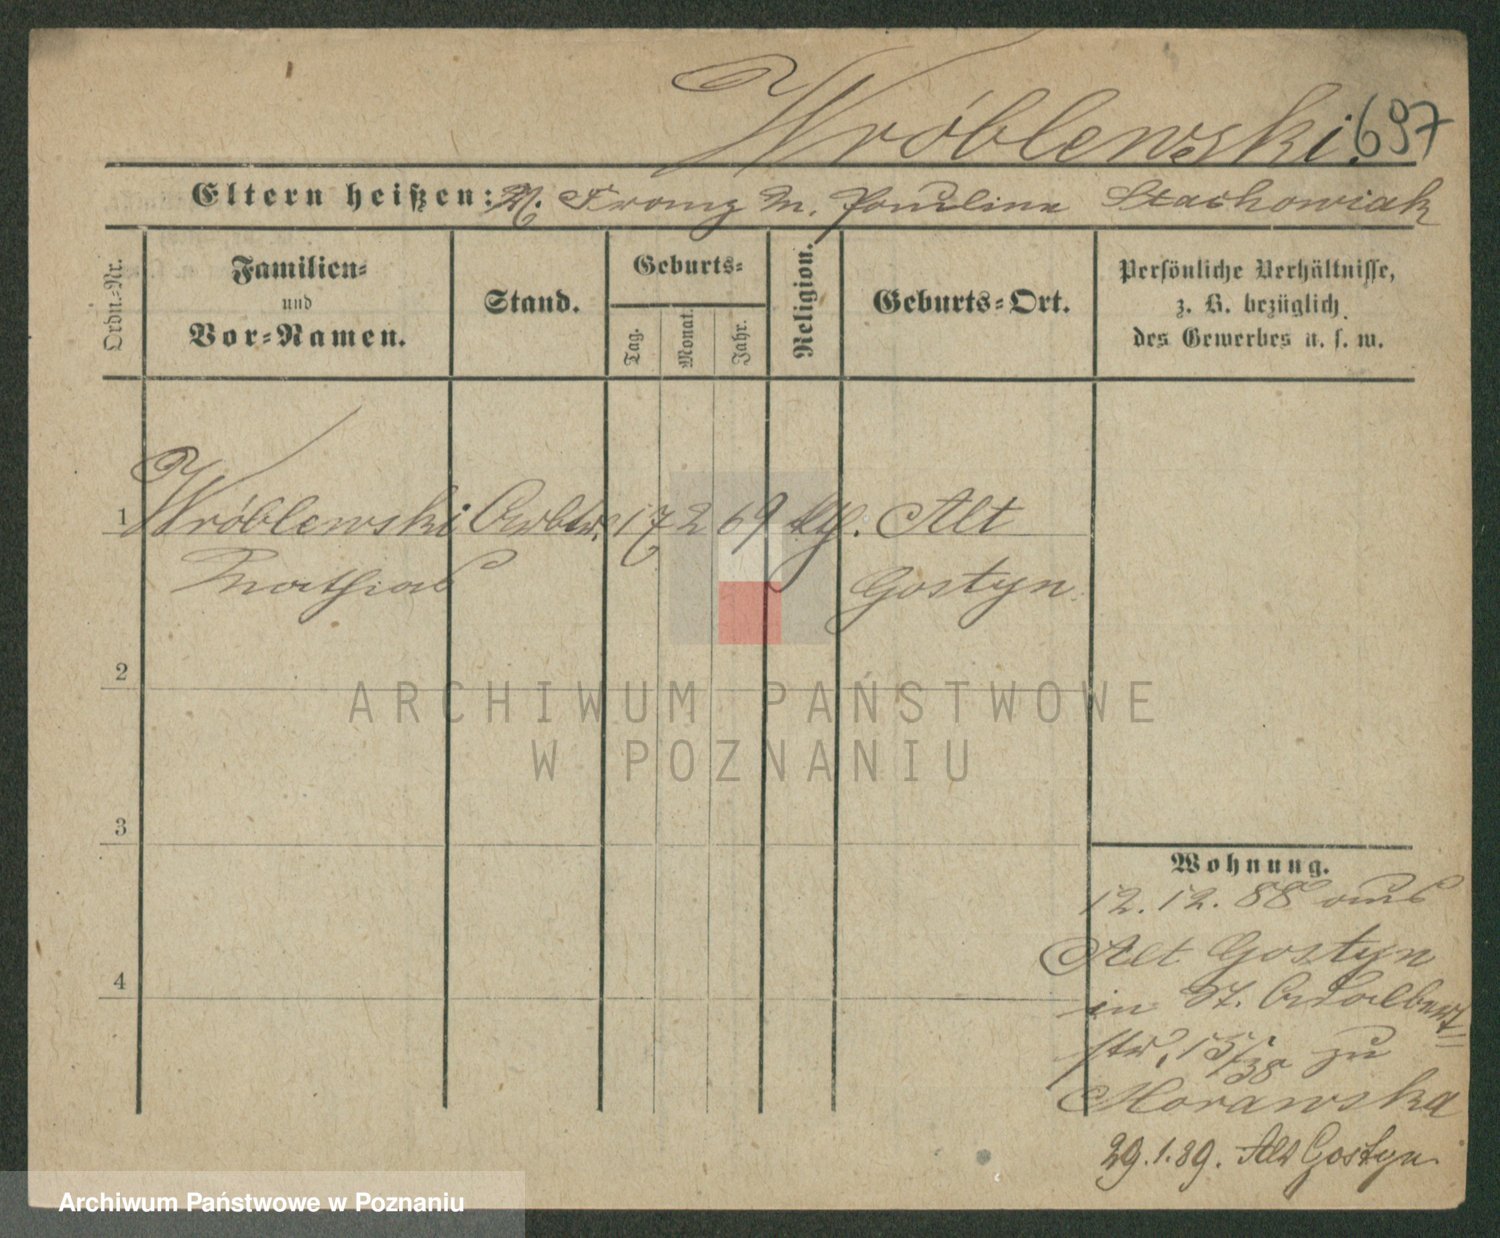 Wróblewski. 697
Eltern heißen: V. Franz M. Paulina Stachowiak
Ordn.-Nr.
Familien-
und
Vor-Namen.
Stand.
Geburts-
Tag.
Monat.
Jahr.
Religion.
Geburts-Ort.
Persönliche Verhältnisse,
z. B. bezüglich
des Gewerbes u. s. w.
1 Wróblewski Arbtr. 17 2 69 kth. Alt
Mathias Gostyn.
2
ARCHIWUM PAŃSTWOWE
W POZNANIU
3
4
Wohnung.
12. 12. 88 aus
Alt Gostyn
in St. Adalbert-
str. 15/38 zu
Morawska
29.1.89. Alt Gostyn
Archiwum Państwowe w Poznaniu